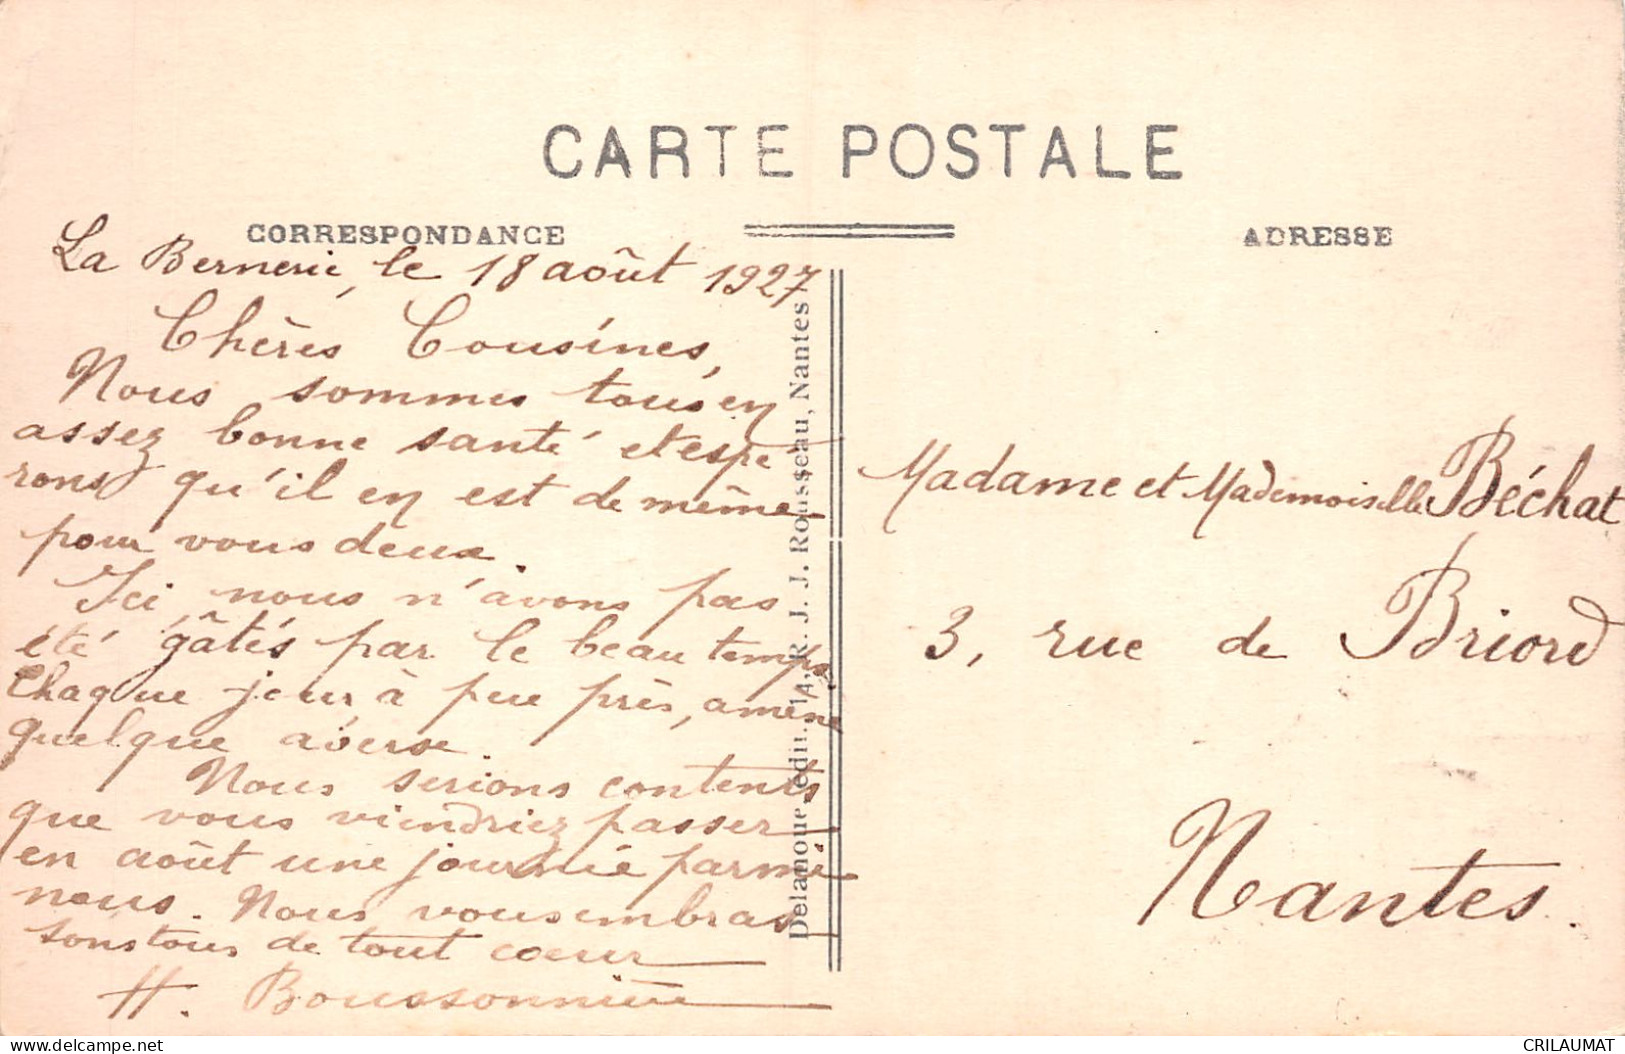 CARTE POSTALE
CORRESPONDANCE
ADRESSE
La Bernerie, le 18 août 1927
Chères Cousines,
Nous sommes tous en
assez bonne santé et espé
rons qu'il en est de même
pour vous deux.
Ici, nous n'avons pas
été gâtés par le beau temps
Chaque jour, à peu près, amène
quelque averse.
Nous serions contents
que vous viendriez passer
en août une journée parmi
nous. Nous vous embras
sons tous de tout cœur
H. Boussonnière
Delanoue, édit., 14, R. J. J. Rousseau, Nantes
Madame et Mademoiselle Béchat
3, rue de Briord
Nantes.
Delcampe.net
CRILAUMAT